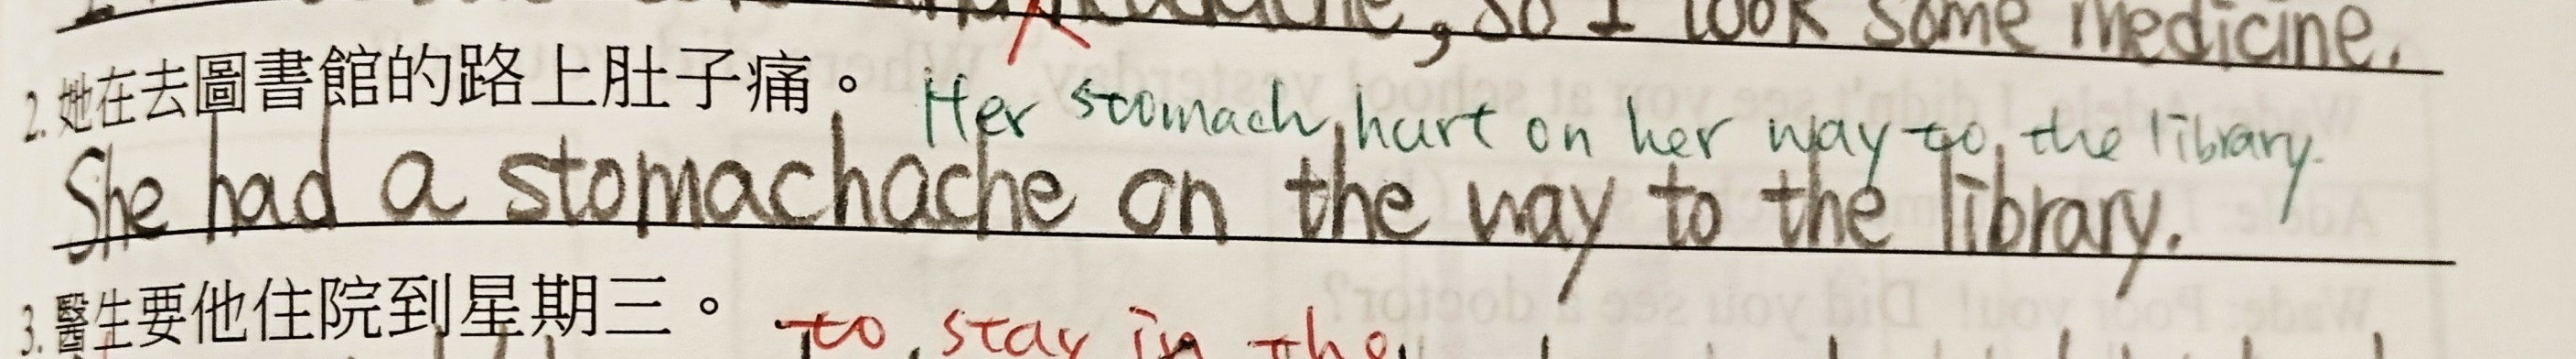 , so I took some medicine.
2. 她在去圖書館的路上肚子痛。 Her stomach hurt on her way to the library.
She had a stomachache on the way to the library.
3. 醫生要他住院到星期三。 to stay in the